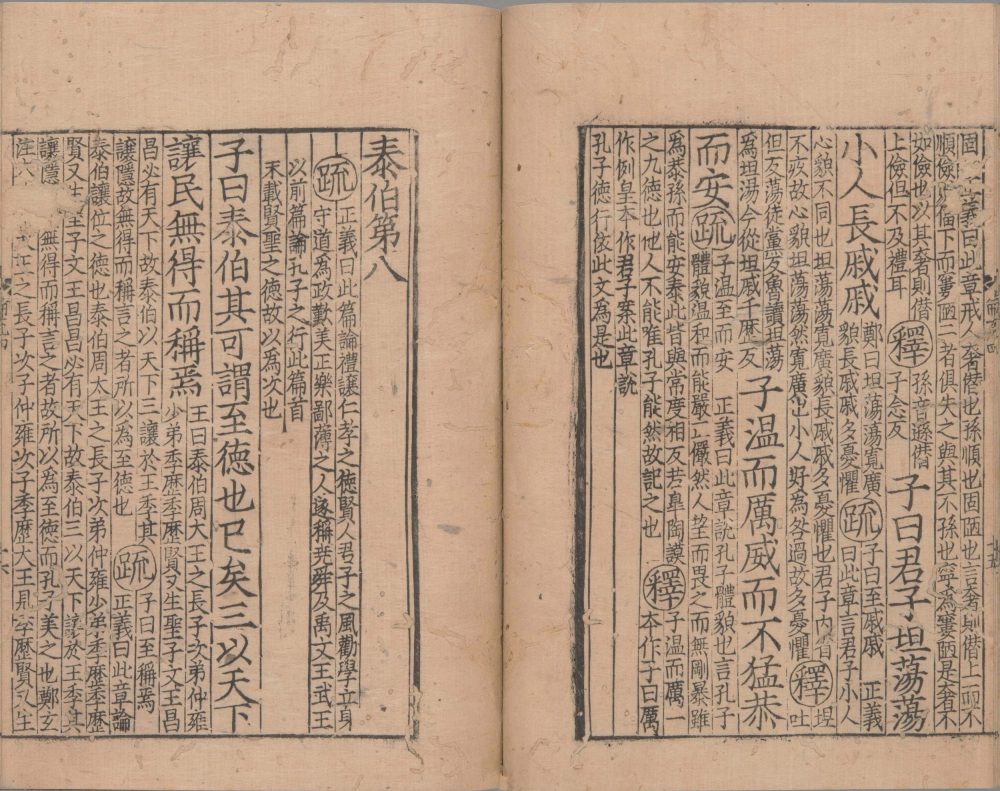 固義曰此章戒人奢僭也孫順也固陋也言奢則僭上
順儉則偪下而寠陋二者俱失之與其不孫也寧為寠陋是奢者不
如儉也以其奢則僭
上儉但不及禮耳
釋
孫音遜僭
子念反
子曰君子坦蕩蕩
小人長戚戚
鄭曰坦蕩蕩寬廣
貌長戚戚多憂懼
疏
子曰至戚戚 正義
曰此章言君子小人
心貌不同也坦蕩蕩寬廣貌長戚戚多憂懼也君子內省
不疚故心貌坦蕩蕩然寬廣也小人好為咎過故多憂懼
釋
坦
吐
但反蕩徒黨反魯讀坦蕩
為坦湯今從坦戚千歷反
子温而厲威而不猛恭
而安
疏
子温至而安 正義曰此章說孔子體貌也言孔子
體貌温和而能嚴正儼然人望而畏之而無剛暴雖
為恭孫而能安泰此皆與常度相反若皐陶謨
之九德也他人不能唯孔子能然故記之也
釋
子温而厲一
本作子曰厲
作例皇本作君子案此章說
孔子德行依此文為是也
泰伯第八
疏
正義曰此篇論禮讓仁孝之德賢人君子之風勸學立身
守道為政歎美正樂鄙薄之人遂稱堯舜及禹文王武王
以前篇論孔子之行此篇首
末載賢聖之德故以為次也
子曰泰伯其可謂至德也已矣三以天下
讓民無得而稱焉
王曰泰伯周大王之長子次弟仲雍
少弟季歷季歷賢又生聖子文王昌
昌必有天下故泰伯以天下三讓於王季其
讓隱故無得而稱言之者所以為至德也
疏
子曰至稱焉
正義曰此章論
泰伯讓位之德也泰伯周太王之長子次弟仲雍少弟季歷季歷
賢又生聖子文王昌昌必有天下故泰伯三以天下讓於王季其
讓隱無得而稱言之者故所以為至德而孔子美之也鄭玄
注之長子次子仲雍次子季歷大王見季歷賢又生